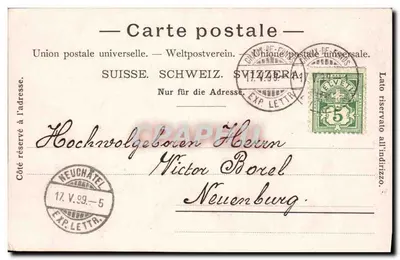 Carte postale
Union postale universelle. — Weltpostverein. — Unione postale universale.
SUISSE. SCHWEIZ. SVIZZERA.
Nur für die Adresse.
Côté réservé à l'adresse.
Lato riservato all'indirizzo.
HELVETIA
5
17.V.99.
EXP. LETTR.
Hochwolgeboren Herrn
Victor Borel
Neuenburg.
NEUCHÂTEL
17.V.99.-5
EXP. LETTR.